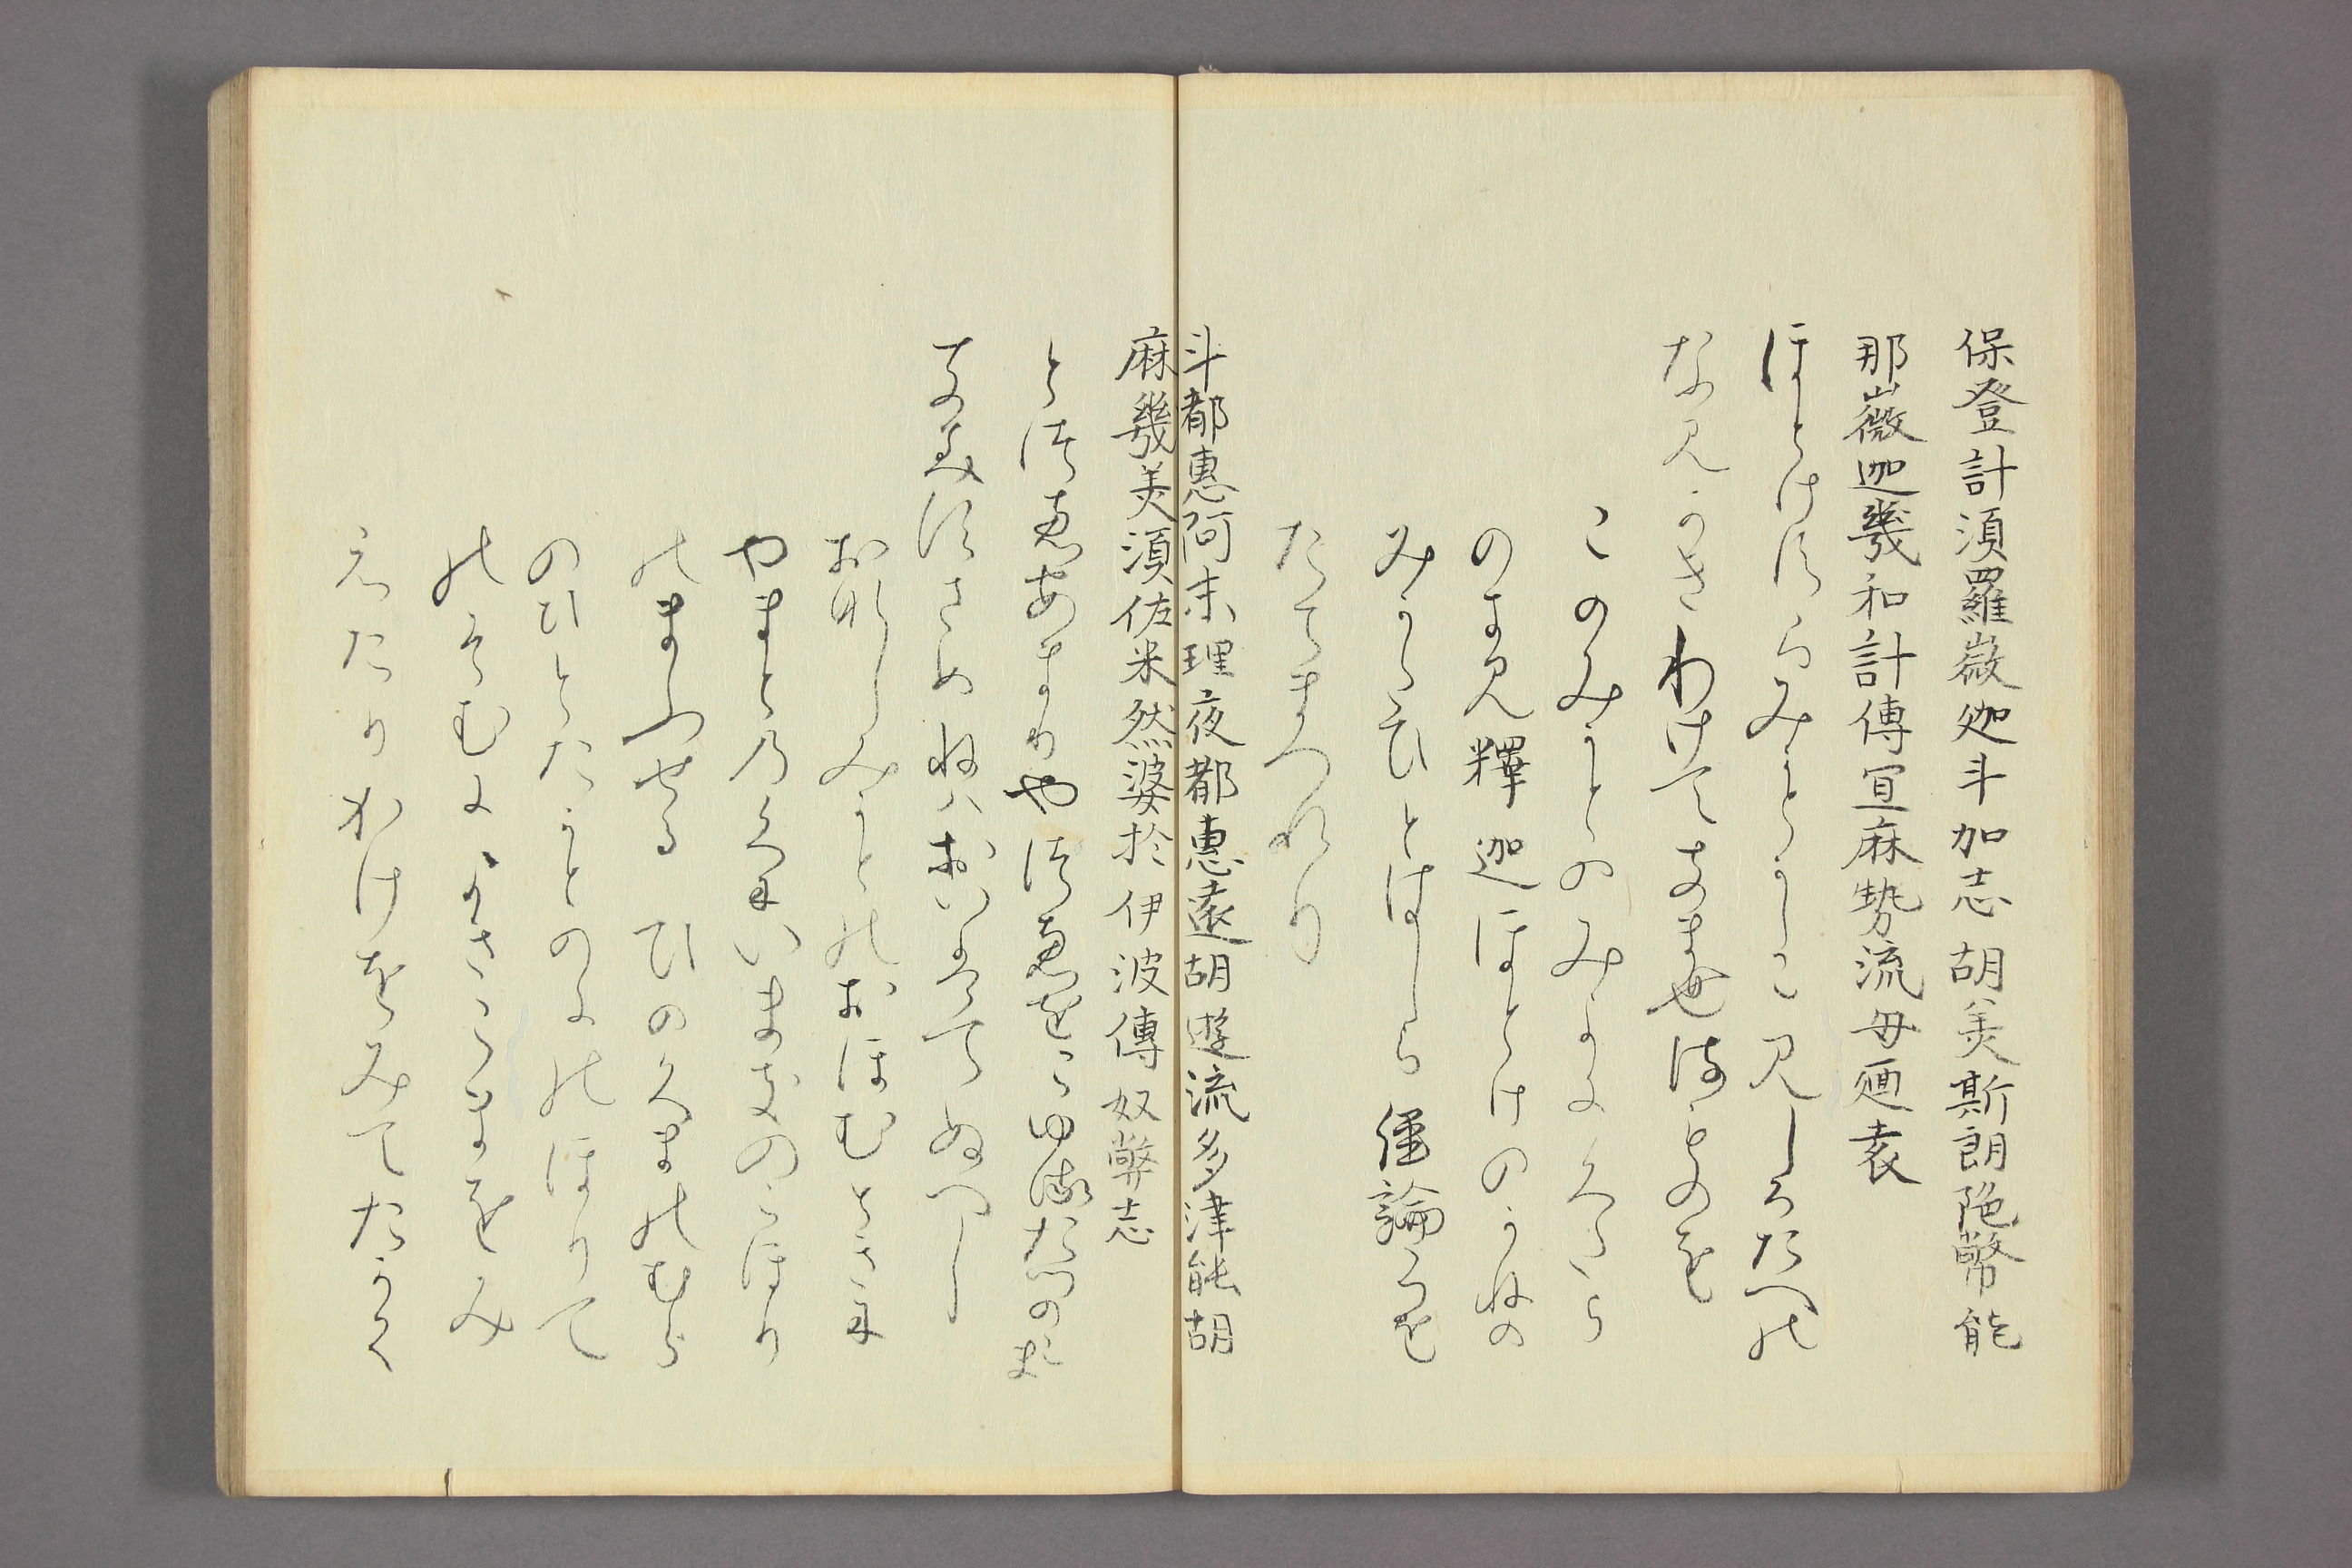 保登計須羅巌迦斗加志胡美斯朗陁幣能
那巌迦幾和計傳宣麻勢流母廼袁
ほとけすらみとかしこみしろたへの
なみかきわけてきませるものを
このみかとのみよにくたら
のまみ釋迦ほとけのかねの
みかたひとはしら經論らを
たてまつれり
斗都惠阿末理夜都惠遠胡遊流多津能胡
麻幾美須佐米然婆於伊波傳奴弊志
とつゑあまりやつゑをこゆるたつのこま
きみすさめねはおいはてぬへし
おなしみかとのおほむときに
やまとのくにいまきのこほり
のまふせるひのくまのむら
のひとたかとのにのほりて
のそむにかきこまをみ
えたりかけをみてたかく